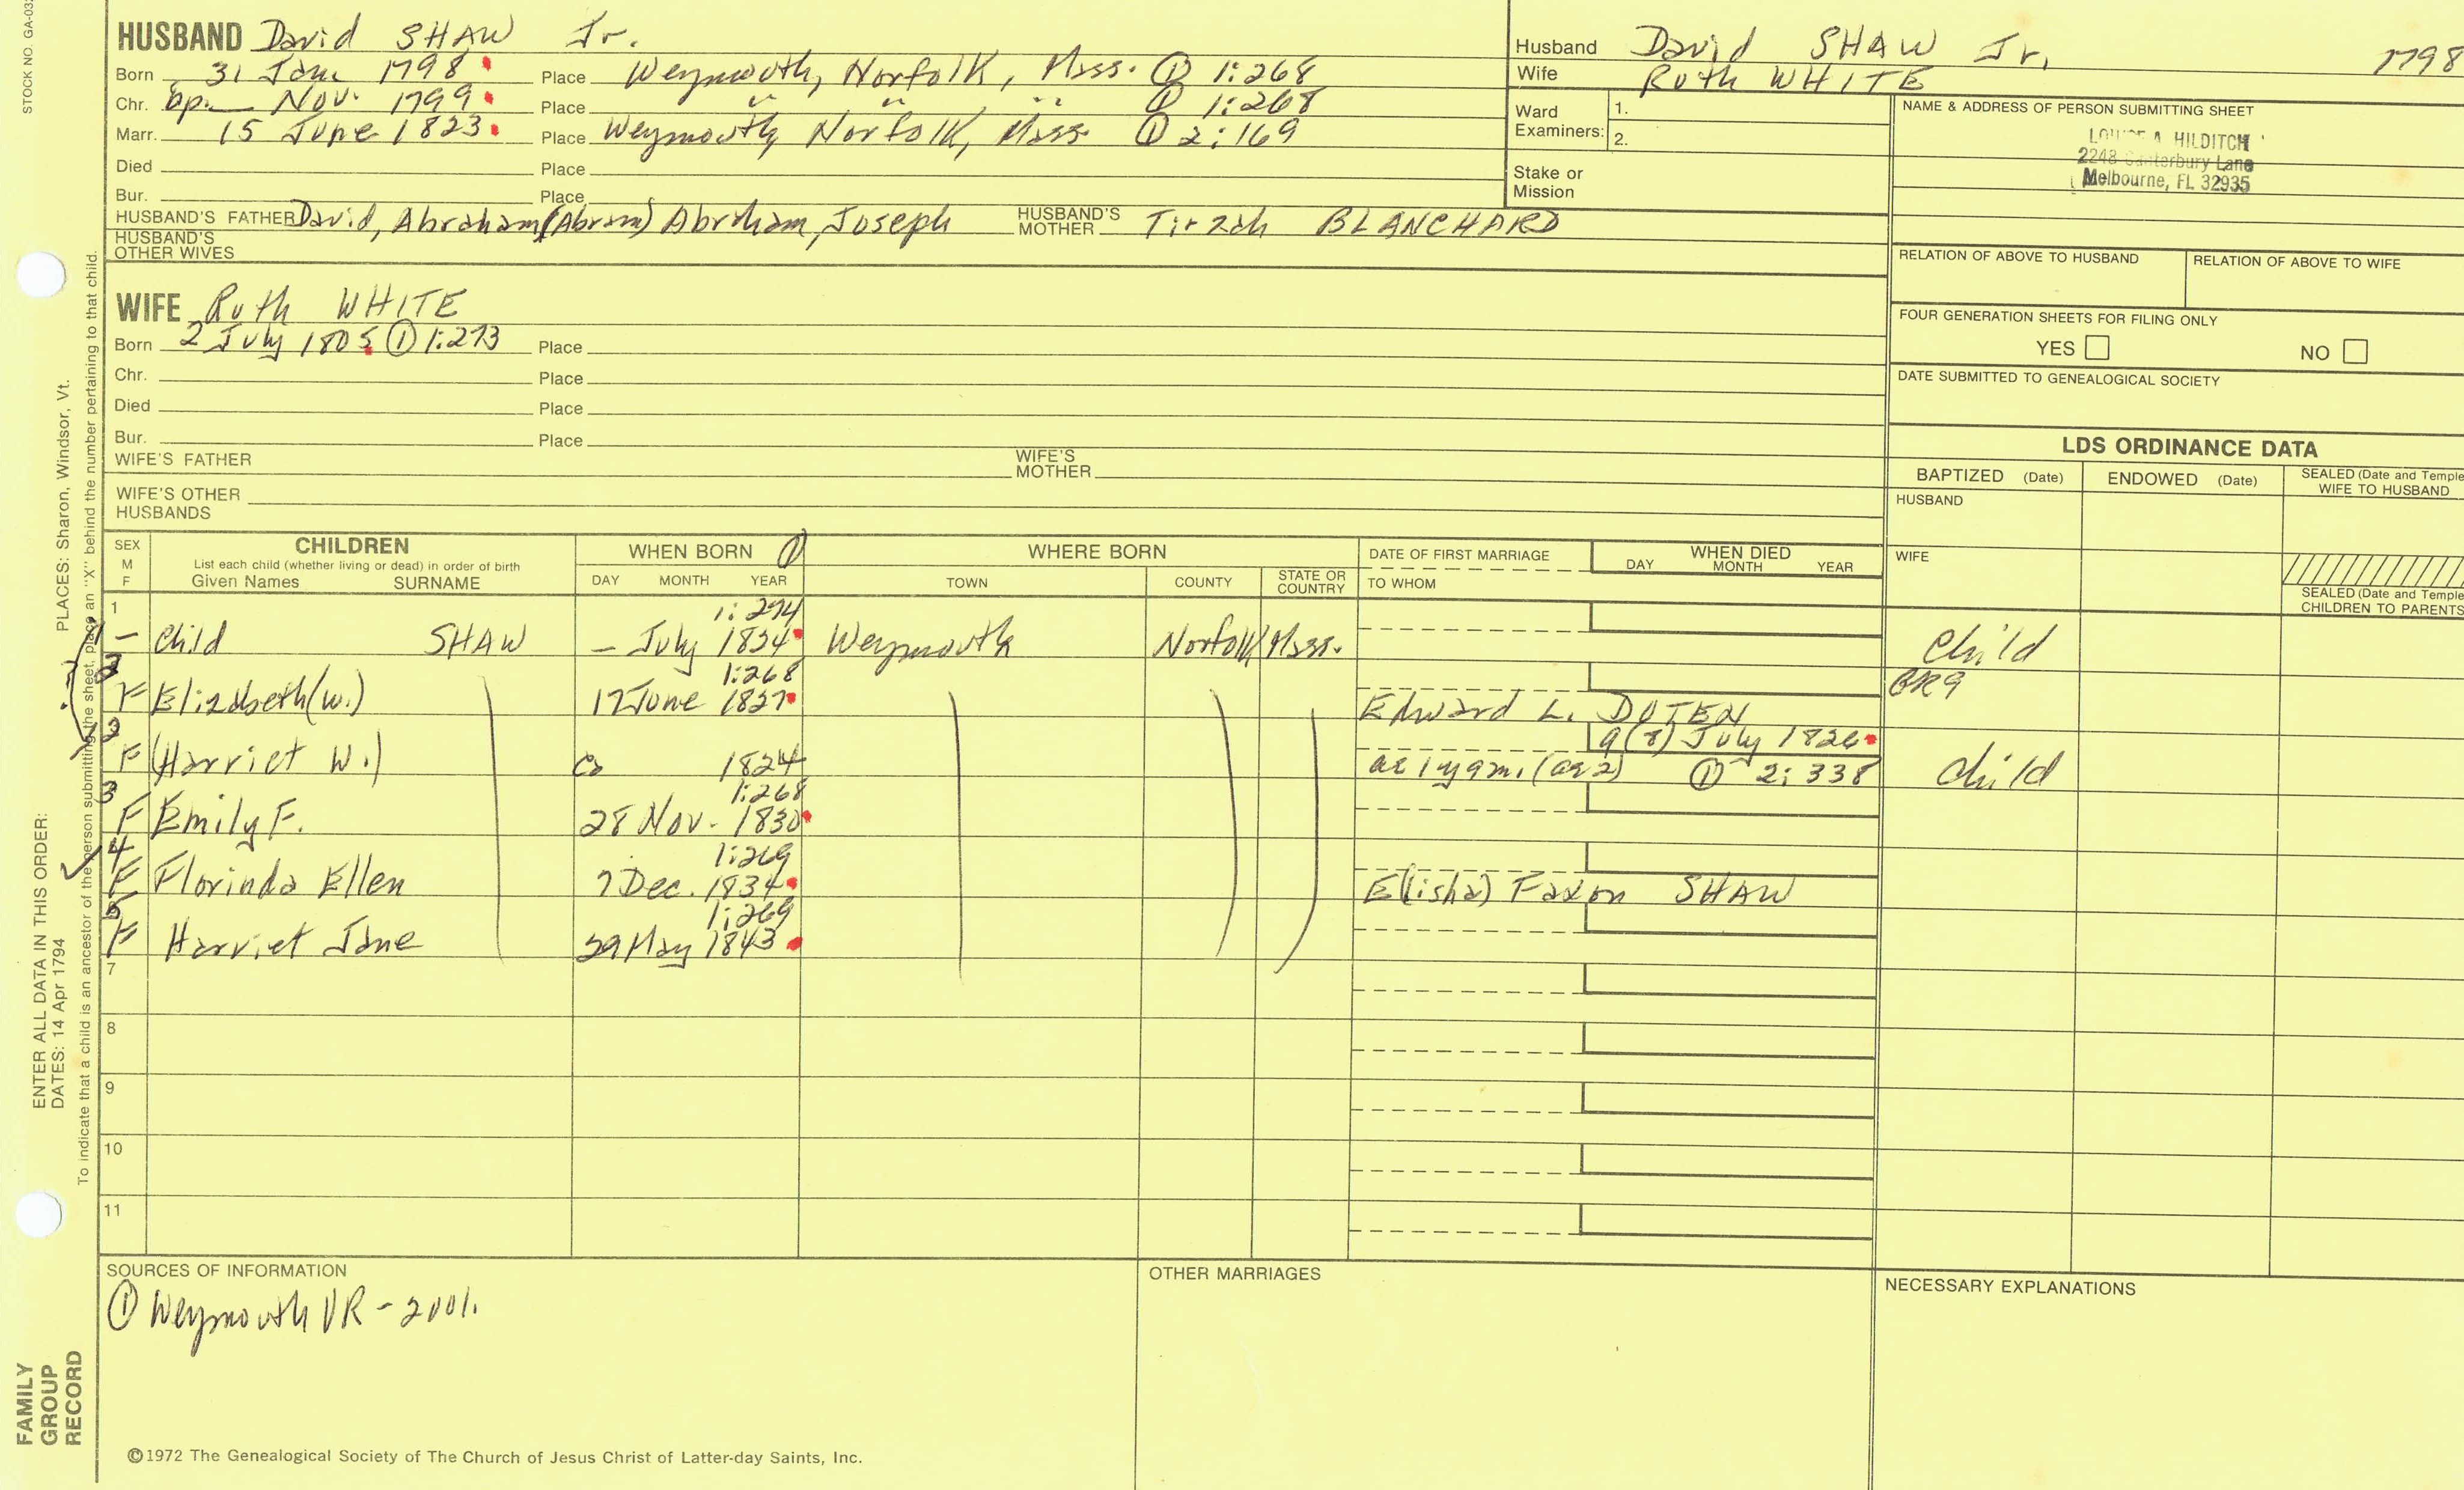 STOCK NO. GA-03
HUSBAND David SHAW Jr.
Born 31 Jan. 1798 Place Weymouth, Norfolk, Mass. ① 1:268
Chr. bp. — Nov. 1799 Place " " " ① 1:268
Marr. 15 June 1823 Place Weymouth, Norfolk, Mass ① 2:169
Died Place
Bur. Place
HUSBAND'S FATHER David, Abraham (Abram) Abraham, Joseph HUSBAND'S MOTHER Tirzah BLANCHARD
HUSBAND'S OTHER WIVES
WIFE Ruth WHITE
Born 2 July 1805 ① 1:273 Place
Chr. Place
Died Place
Bur. Place
WIFE'S FATHER WIFE'S MOTHER
WIFE'S OTHER HUSBANDS
Husband David SHAW Jr. 1798
Wife Ruth WHITE
Ward Examiners: 1.
2.
Stake or Mission
NAME & ADDRESS OF PERSON SUBMITTING SHEET
A HILDITCH
2248 Canterbury Lane
Melbourne, FL 32935
RELATION OF ABOVE TO HUSBAND RELATION OF ABOVE TO WIFE
FOUR GENERATION SHEETS FOR FILING ONLY
YES NO
DATE SUBMITTED TO GENEALOGICAL SOCIETY
LDS ORDINANCE DATA
BAPTIZED (Date) ENDOWED (Date) SEALED (Date and Temple
WIFE TO HUSBAND
HUSBAND
WIFE
SEALED (Date and Temple
CHILDREN TO PARENTS
SEX M F CHILDREN WHEN BORN ① WHERE BORN DATE OF FIRST MARRIAGE WHEN DIED
List each child (whether living or dead) in order of birth
Given Names SURNAME DAY MONTH YEAR TOWN COUNTY STATE OR COUNTRY TO WHOM DAY MONTH YEAR
1 1:274
— Child SHAW — July 1834 Weymouth Norfolk Mass. Child
2 1:268 BR9
F Elizabeth (W.) 17 June 1827 Edward L. DOTEN
3 9(8) July 1826
F (Harriet W.) Ca 1824 ae 1 y 9 m. (ae 2) ① 2:338 Child
3 1:268
F Emily F. 28 Nov. 1830
4 1:269
F Florinda Ellen 7 Dec. 1834 E(lisha) Faxon SHAW
5 1:269
F Harriet Jane 29 May 1843
7
8
9
10
11
SOURCES OF INFORMATION
① Weymouth VR - 2 vol.
OTHER MARRIAGES
NECESSARY EXPLANATIONS
©1972 The Genealogical Society of The Church of Jesus Christ of Latter-day Saints, Inc.
FAMILY
GROUP
RECORD
ENTER ALL DATA IN THIS ORDER:
DATES: 14 Apr 1794 PLACES: Sharon, Windsor, Vt.
To indicate that a child is an ancestor of the person submitting the sheet, place an "X" behind the number pertaining to that child.